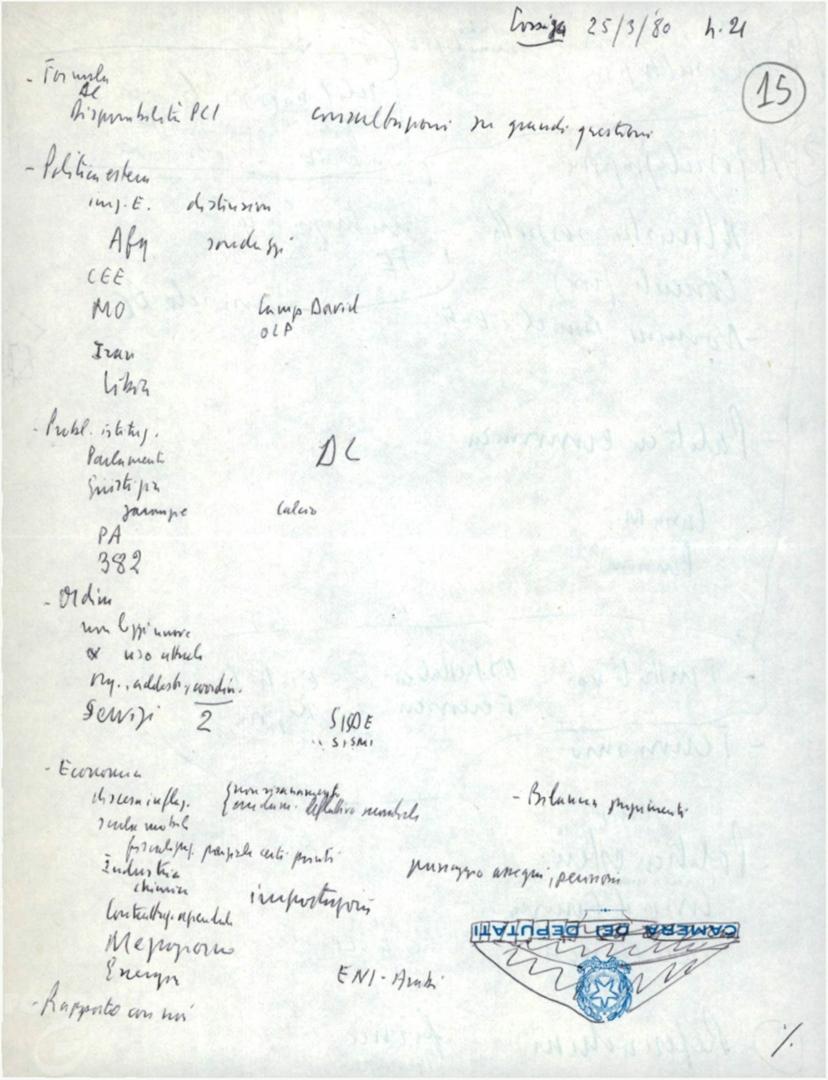 Cossiga 25/3/80 h. 21
15
- Formula
DC
Disponibilità PCI consultazioni su grandi questioni
- Politica estera
imp. E. distension
Afg sondaggi
CEE
MO Camp David
OLP
Iran
Libia
- Probl. istituz.
Parlamento DC
Giustizia
carceri calcio
PA
382
- Ordine
non leggi nuove
uso attuale
org., addestr., coordin.
Servizi 2 SISDE
" SISMI
- Economia
discesa inflaz. non risanamento - Bilancia pagamenti
andam. deflattivo mondiale
scala mobile
fiscalizz. parziale certi punti
Industria passaggio assegni, pensioni
chimica importazioni
Contrattaz. aziendale
Mezzogiorno
Energia ENI-Arabi
- Rapporto con noi
CAMERA DEI DEPUTATI
%